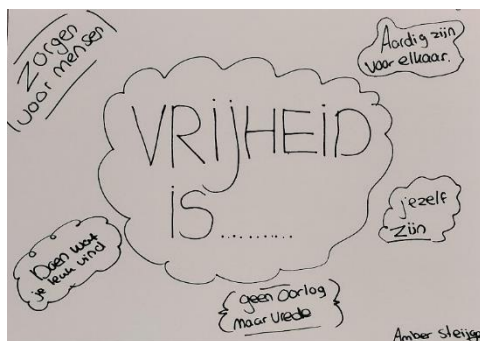 Zorgen
voor mensen
Aardig zijn
voor elkaar.
VRIJHEID
is.........
jezelf
zijn
Doen wat
je leuk vind
geen oorlog
maar vrede
Amber